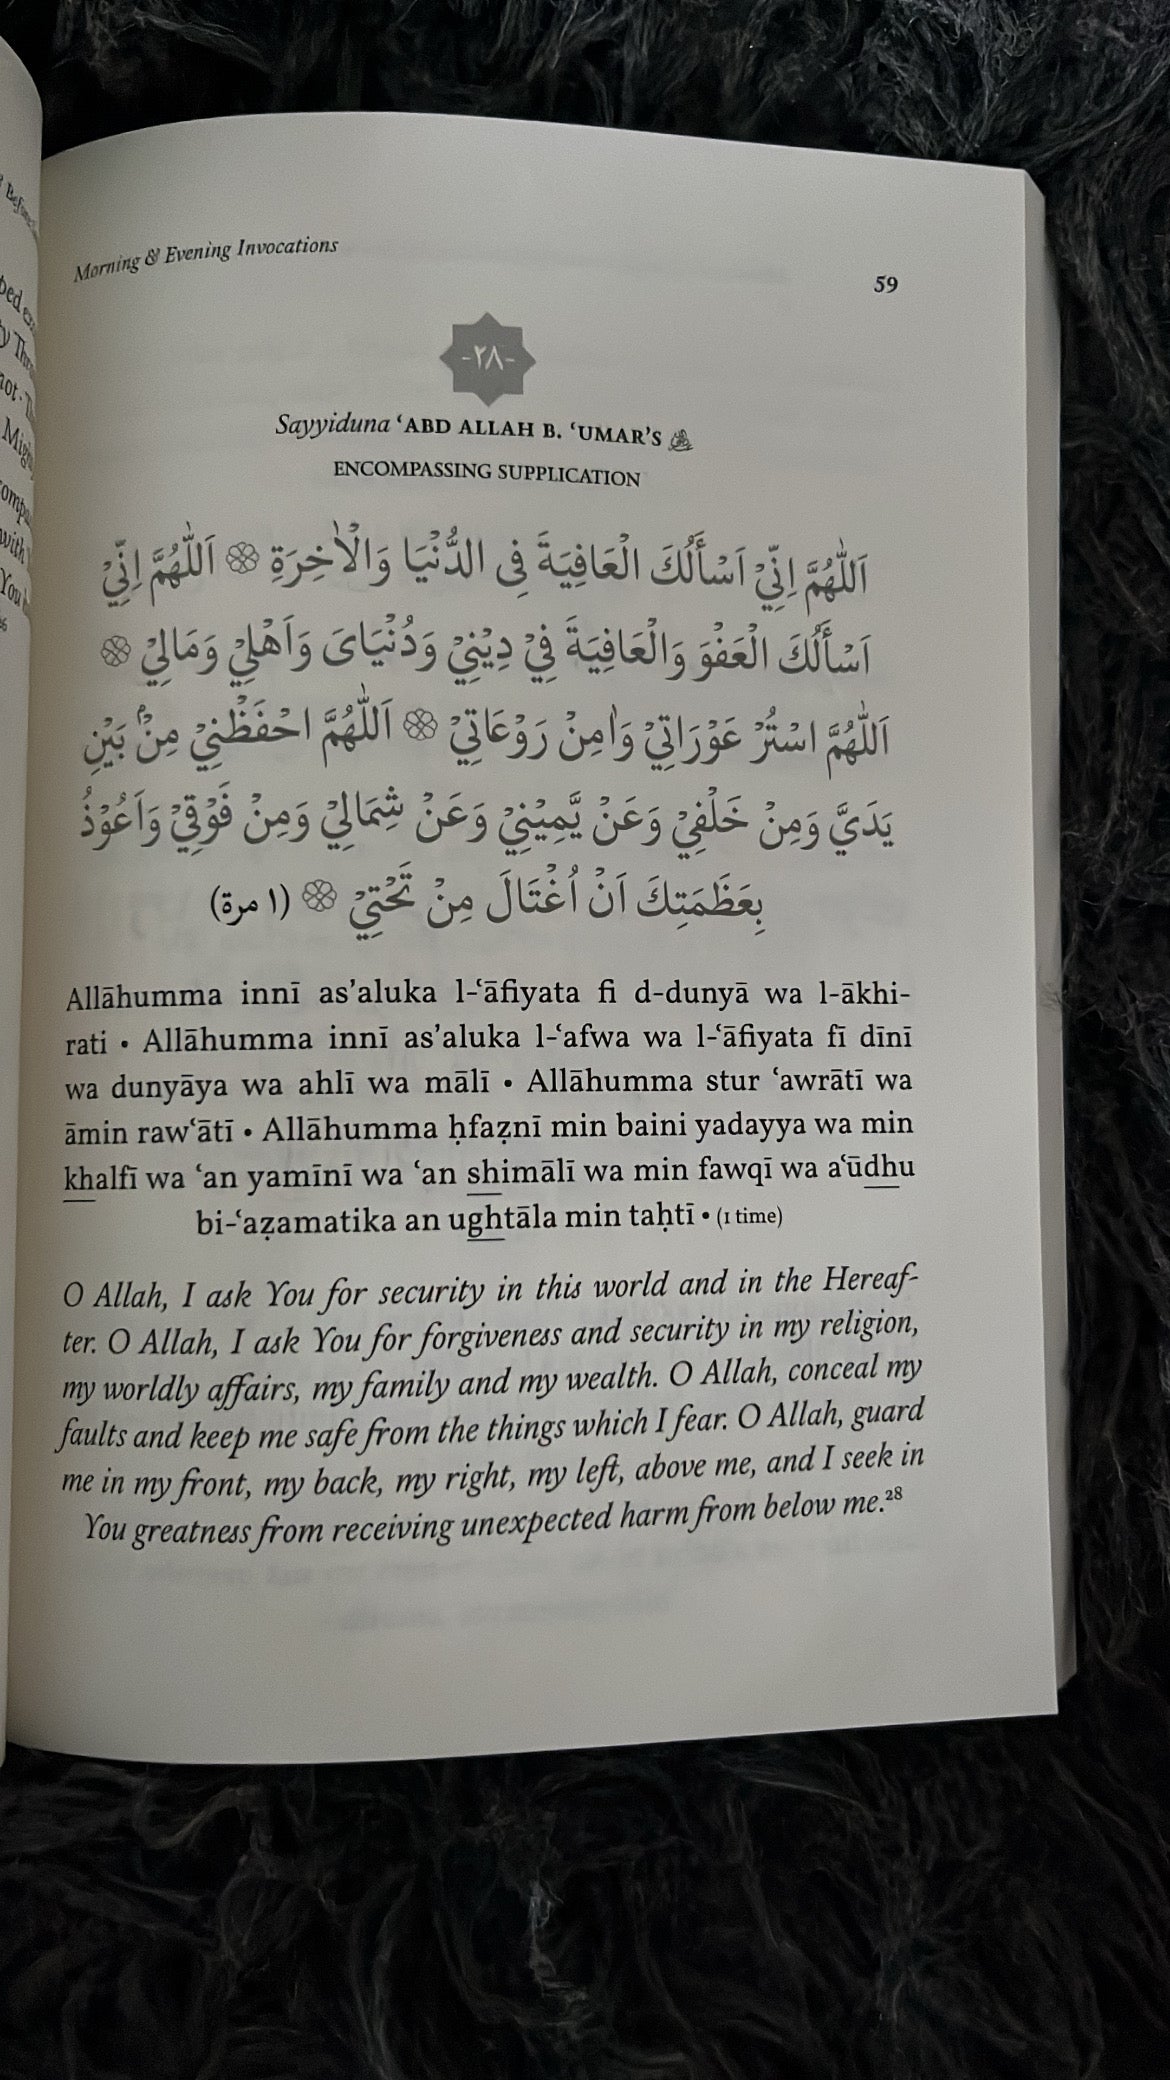 Morning & Evening Invocations
59
-٢٨-
Sayyiduna ‘ABD ALLAH B. ‘UMAR’S
ENCOMPASSING SUPPLICATION
اَللّٰهُمَّ اِنِّيْ اَسْأَلُكَ الْعَافِيَةَ فِى الدُّنْيَا وَالْاٰخِرَةِ ۞ اَللّٰهُمَّ اِنِّيْ
اَسْأَلُكَ الْعَفْوَ وَالْعَافِيَةَ فِيْ دِيْنِيْ وَدُنْيَاىَ وَاَهْلِيْ وَمَالِيْ ۞
اَللّٰهُمَّ اسْتُرْ عَوْرَاتِيْ وَاٰمِنْ رَوْعَاتِيْ ۞ اَللّٰهُمَّ احْفَظْنِيْ مِنْۢ بَيْنِ
يَدَيَّ وَمِنْ خَلْفِيْ وَعَنْ يَّمِيْنِيْ وَعَنْ شِمَالِيْ وَمِنْ فَوْقِيْ وَاَعُوْذُ
بِعَظَمَتِكَ اَنْ اُغْتَالَ مِنْ تَحْتِيْ ۞ (١ مرة)
Allāhumma innī as’aluka l-‘āfiyata fi d-dunyā wa l-ākhi-
rati • Allāhumma innī as’aluka l-‘afwa wa l-‘āfiyata fī dīnī
wa dunyāya wa ahlī wa mālī • Allāhumma stur ‘awrātī wa
āmin raw‘ātī • Allāhumma ḥfaẓnī min baini yadayya wa min
khalfī wa ‘an yamīnī wa ‘an shimālī wa min fawqī wa a‘ūdhu
bi-‘aẓamatika an ughtāla min taḥtī • (1 time)
O Allah, I ask You for security in this world and in the Hereaf-
ter. O Allah, I ask You for forgiveness and security in my religion,
my worldly affairs, my family and my wealth. O Allah, conceal my
faults and keep me safe from the things which I fear. O Allah, guard
me in my front, my back, my right, my left, above me, and I seek in
You greatness from receiving unexpected harm from below me.²⁸